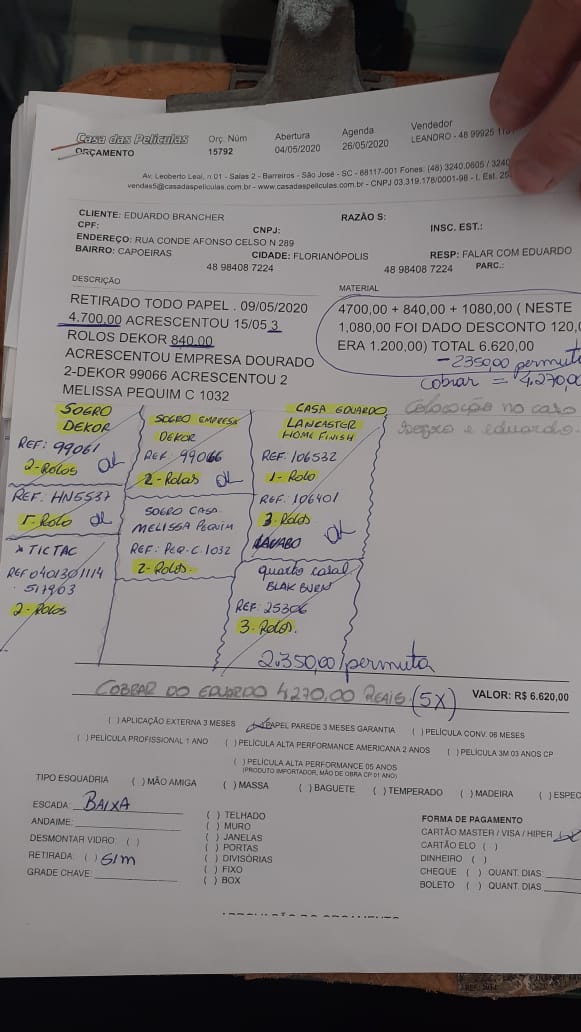 Casa das Películas
ORÇAMENTO
Orç. Núm
15792
Abertura
04/05/2020
Agenda
26/05/2020
Vendedor
LEANDRO - 48 99925
Av. Leoberto Leal, n 01 - Salas 2 - Barreiros - São José - SC - 88117-001 Fones: (48) 3240.0605 / 3240
vendas5@casadaspeliculas.com.br - www.casadaspeliculas.com.br - CNPJ 03.319.178/0001-98 - I. Est. 25
CLIENTE: EDUARDO BRANCHER
RAZÃO S:
CPF:
CNPJ:
INSC. EST.:
ENDEREÇO: RUA CONDE AFONSO CELSO N 289
BAIRRO: CAPOEIRAS
CIDADE: FLORIANÓPOLIS
RESP: FALAR COM EDUARDO
48 98408 7224
48 98408 7224
PARC.:
DESCRIÇÃO
RETIRADO TODO PAPEL . 09/05/2020
4.700,00 ACRESCENTOU 15/05 3
ROLOS DEKOR 840,00
ACRESCENTOU EMPRESA DOURADO
2-DEKOR 99066 ACRESCENTOU 2
MELISSA PEQUIM C 1032
MATERIAL
4700,00 + 840,00 + 1080,00 ( NESTE
1,080,00 FOI DADO DESCONTO 120,0
ERA 1.200,00) TOTAL 6.620,00
- 2350,00 permuta
Cobrar = 4.270,00
Colocação no caso
sogro e eduardo.
SOGRO
DEKOR
REF: 99061
2-ROLOS OK
REF: HN5537
1-ROLO OK
* TIC TAC
REF 0401301114
517903
2-ROLOS
SOGRO EMPRESA
DEKOR
REF: 99066
2-ROLOS OK
SOGRO CASA
MELISSA PEQUIM
REF: PEQ-C.1032
2-ROLOS.
CASA EDUARDO
LANCASTER
HOME FINISH
REF: 106532
1-ROLO
REF: 106401
3-ROLOS
LAVABO OK
quarto casal
BLAK BURN
REF: 25306
3-ROLOS.
2.350,00 permuta
COBRAR DO EDUARDO 4270,00 REAIS (5X)
VALOR: R$ 6.620,00
( ) APLICAÇÃO EXTERNA 3 MESES (X) PAPEL PAREDE 3 MESES GARANTIA ( ) PELÍCULA CONV. 06 MESES
( ) PELÍCULA PROFISSIONAL 1 ANO ( ) PELÍCULA ALTA PERFORMANCE AMERICANA 2 ANOS ( ) PELÍCULA 3M 03 ANOS CP
( ) PELÍCULA ALTA PERFORMANCE 05 ANOS
(PRODUTO IMPORTADOR, MÃO DE OBRA CP 01 ANO)
TIPO ESQUADRIA ( ) MÃO AMIGA ( ) MASSA ( ) BAGUETE ( ) TEMPERADO ( ) MADEIRA ( ) ESPEC
ESCADA: BAIXA
ANDAIME:
DESMONTAR VIDRO: ( )
RETIRADA: ( ) SIM
GRADE CHAVE:
( ) TELHADO
( ) MURO
( ) JANELAS
( ) PORTAS
( ) DIVISÓRIAS
( ) FIXO
( ) BOX
FORMA DE PAGAMENTO
CARTÃO MASTER / VISA / HIPER
CARTÃO ELO ( )
DINHEIRO ( )
CHEQUE ( ) QUANT. DIAS:
BOLETO ( ) QUANT. DIAS